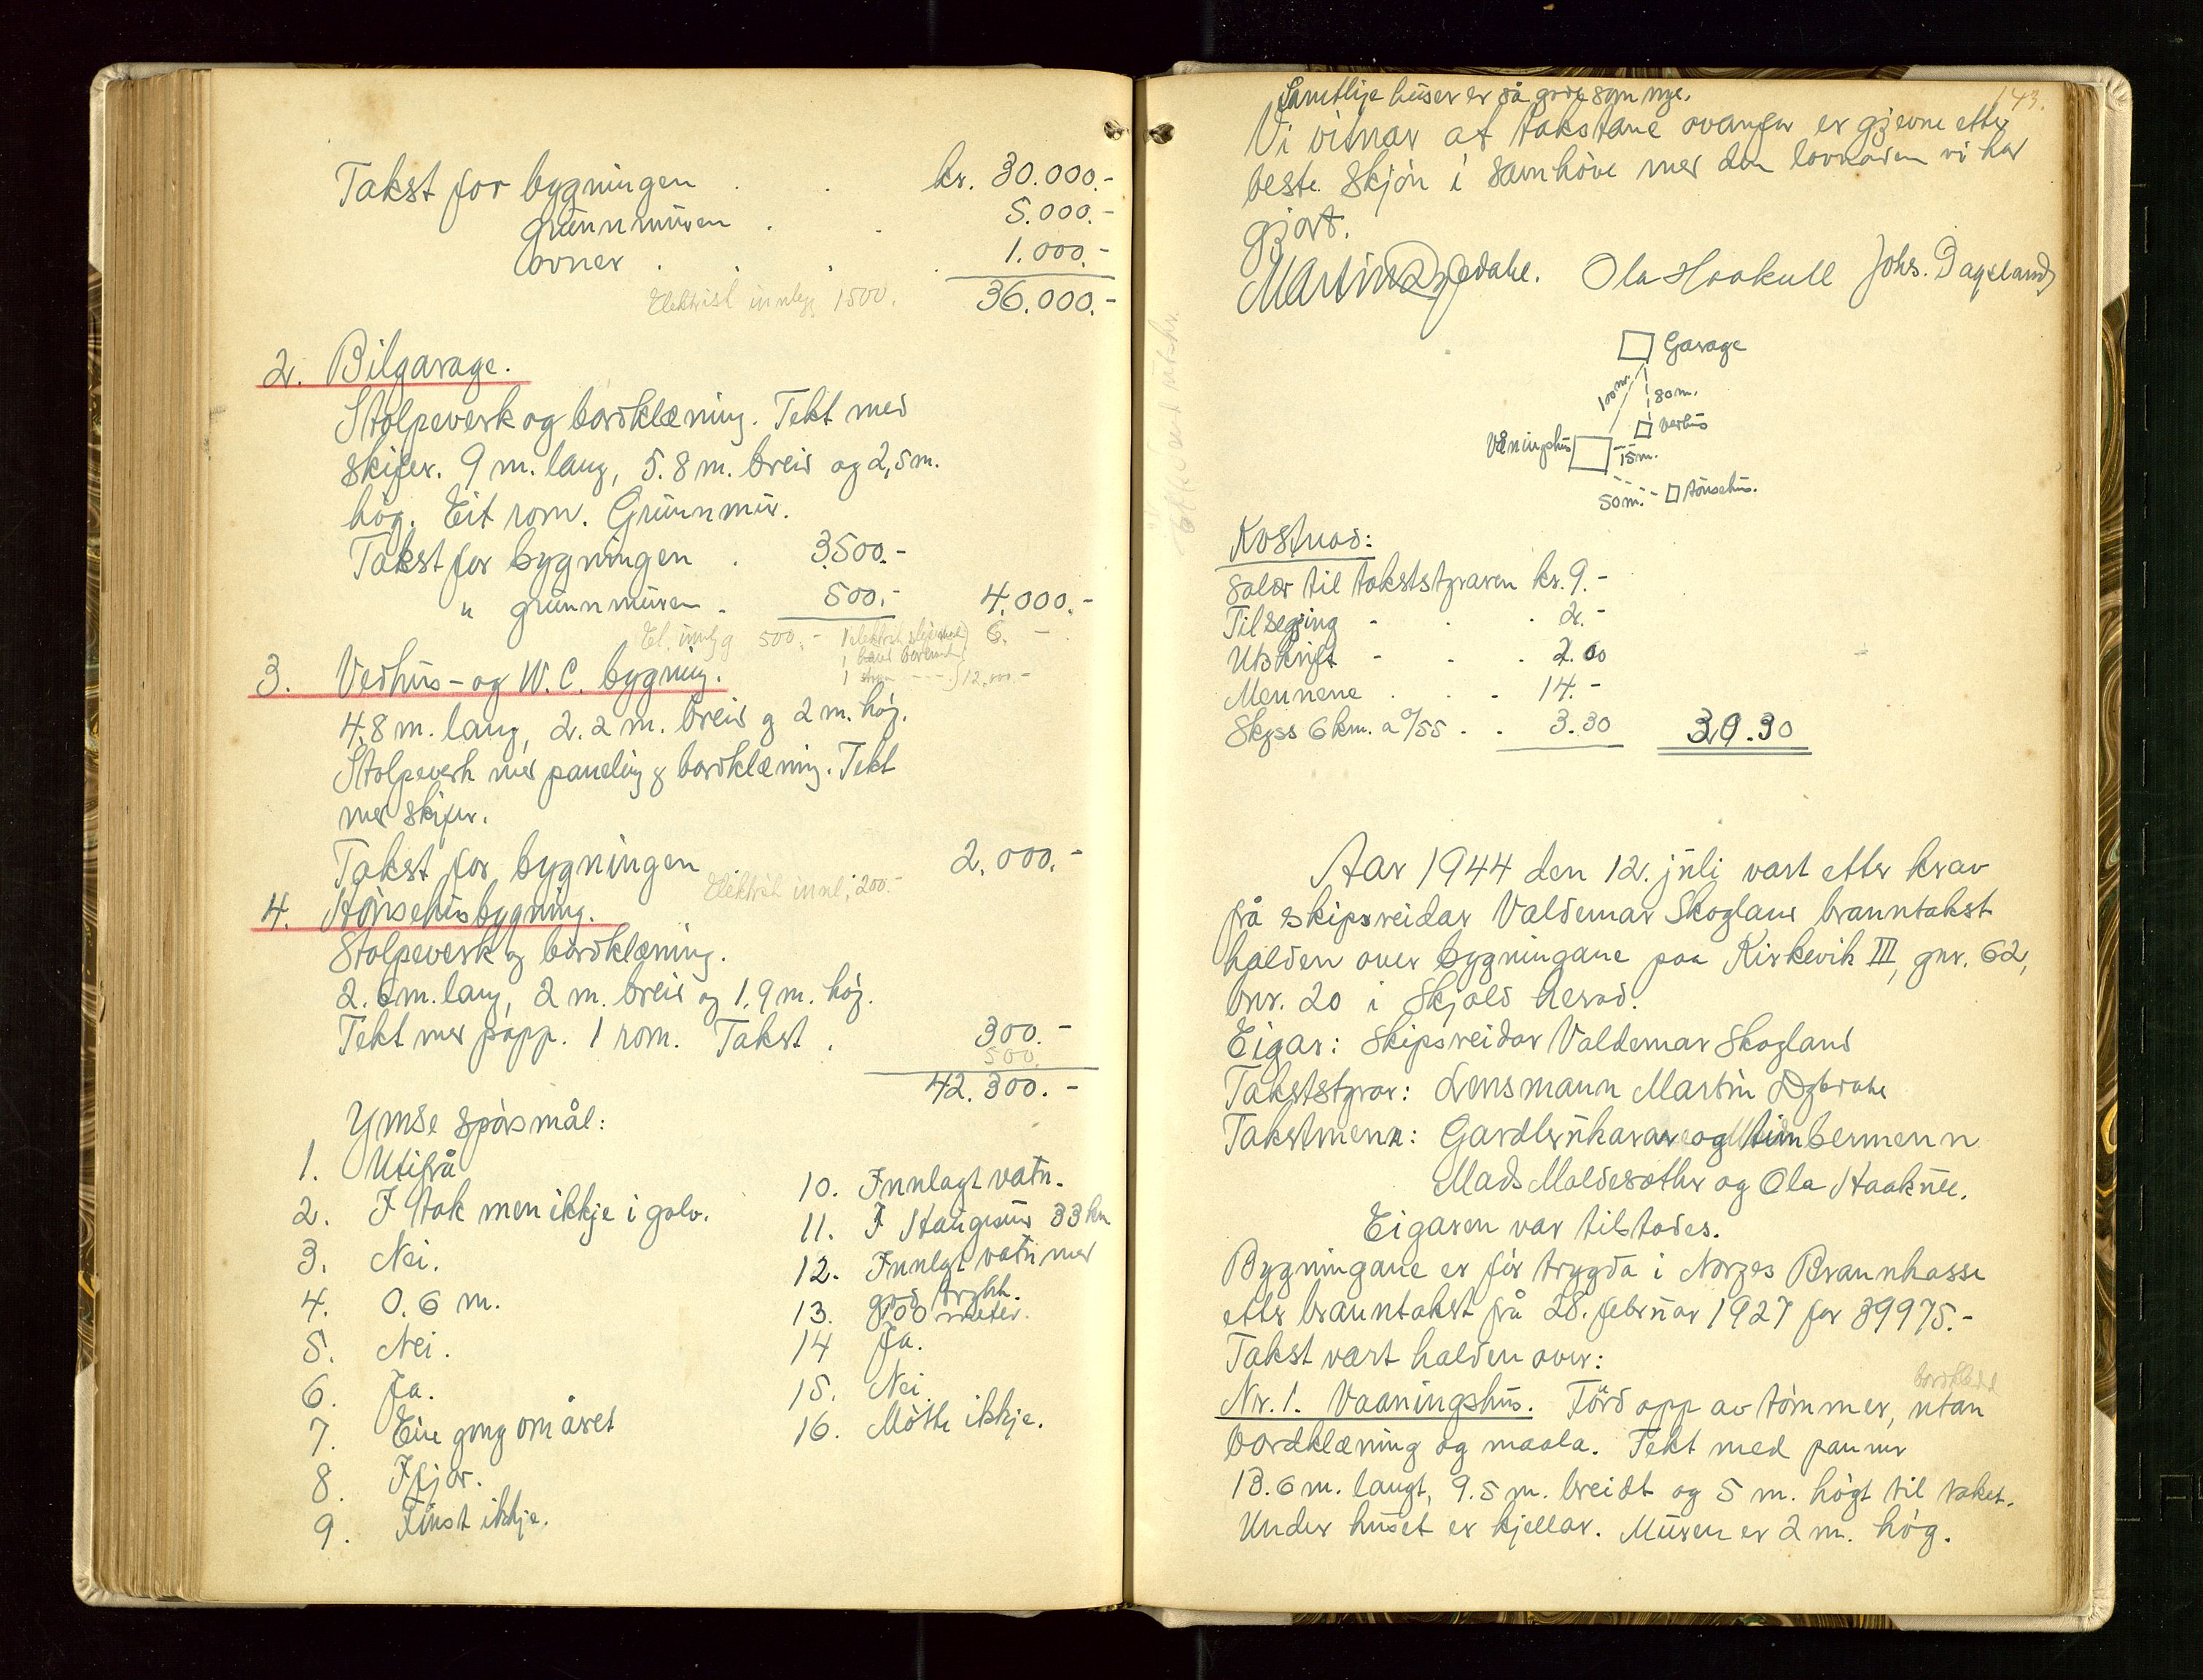 Takst for bygningen . . kr. 30.000.-
grunnmuren . . 5.000.-
ovner . . . . 1.000.-
Elektrisk innlegg 1500. 36.000.-
2. Bilgarage.
Stolpeverk og bordklæning. Tekt med
skifer. 9 m. lang, 5.8 m. breid og 2,5 m.
høg. Eit rom. Grunnmur.
Takst for bygningen . 3500.-
" grunnmuren . 500.- 4.000.-
El. innlegg 500.- 6. -
3. Vedhus- og W.C. bygning.
12.000.-
4.8 m. lang, 2.2 m. breid og 2 m. høg.
Stolpeverk med paneling og bordklæning. Tekt
med skifer.
Takst for bygningen . 2.000.-
Elektrisk innl. 200.-
4. Hønsehusbygning.
Stolpeverk og bordklæning.
2.6 m. lang, 2 m. breid og 1.9 m. høg.
Tekt med papp. 1 rom. Takst . 300.-
500.
42.300.-
Ymse spørsmål:
1. Utifrå
2. I tak men ikkje i golv.
3. Nei.
4. 0.6 m.
5. Nei.
6. Ja.
7. Ein gong om året
8. Ifjor.
9. Finst ikkje.
10. Innlagt vatn.
11. I Haugesund 33 km
12. Innlagt vatn med
god trykk.
13. 100 meter.
14 Ja.
15. Nei.
16. Møtte ikkje.
143.
Samtlige huser er så gode som nye.
Vi vitnar at takstane ovanfor er gjevne etter
beste skjøn i samhøve med den lovnaden vi har
gjort.
Martin Dybdahl. Ola Haakull Johs. Dagsland
Garage
100 m.
80 m.
Vedhus
Våningshus
15 m.
50 m. Hønsehus.
Kostnad:
Salær til takststyraren kr. 9.-
Tilsegjing . . 2.-
Utskrift - . . 2.00
Mennene . . 14.-
Skyss 6 km. a 0/55 . . 3.30 30.30
Aar 1944 den 12. juli vart etter krav
frå skipsreidar Valdemar Skogland branntakst
halden over bygningane paa Kirkevik III, gnr. 62,
bnr. 20 i Skjold herad.
Eigar: Skipsreidar Valdemar Skogland
Takststyrar: Lensmann Martin Dybdahl
Takstmenn: Gardbrukarane og timbermenn
Mads Moldesæther og Ola Haakull.
Eigaren var tilstades.
Bygningane er før trygda i Norges Brannkasse
etter branntakst frå 28. februar 1927 for 39975.-
Takst vart halden over:
bordkledd
Nr. 1. Vaaningshus. Førd opp av tømmer, utan
bordklæning og maala. Tekt med panner
13.6 m. langt, 9.5 m. breidt og 5 m. høgt til taket.
Under huset er kjellar. Muren er 2 m. høg.